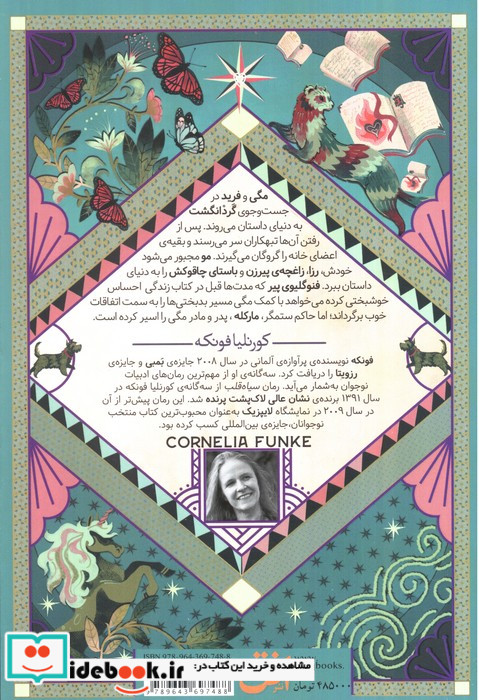 مگی و فرید در
جست‌وجوی گردانگشت
به دنیای داستان می‌روند. پس از
رفتن آن‌ها تبهکاران سر می‌رسند و بقیه‌ی
اعضای خانه را گروگان می‌گیرند. مو مجبور می‌شود
خودش، رزا، زاغچه‌ی پیرزن و باستای چاقوکش را به دنیای
داستان ببرد. فنوگلیوی پیر که مدت‌ها قبل در کتاب زندگی احساس
خوشبختی کرده می‌خواهد با کمک مگی مسیر بدبختی‌ها را به سمت اتفاقات
خوب برگرداند؛ اما حاکم ستمگر، مارکله، پدر و مادر مگی را اسیر کرده است.
کورنلیا فونکه
فونکه نویسنده‌ی پرآوازه‌ی آلمانی در سال ۲۰۰۸ جایزه‌ی بمبی و جایزه‌ی
رزویتا را دریافت کرد. سه‌گانه‌ی او از مهم‌ترین رمان‌های ادبیات
نوجوان به‌شمار می‌آید. رمان سیاه‌قلب از سه‌گانه‌ی کورنلیا فونکه در
سال ۱۳۹۱ برنده‌ی نشان عالی لاک‌پشت پرنده شد. این رمان پیش‌تر از آن
در سال ۲۰۰۹ در نمایشگاه لایپزیک به‌عنوان محبوب‌ترین کتاب منتخب
نوجوانان، جایزه‌ی بین‌المللی کسب کرده بود.
CORNELIA FUNKE
ISBN 978-964-369-748-8
books.
مشاهده و خرید این کتاب در:
idebook.ir
9789643697488
۴۸۵۰۰۰ تومان